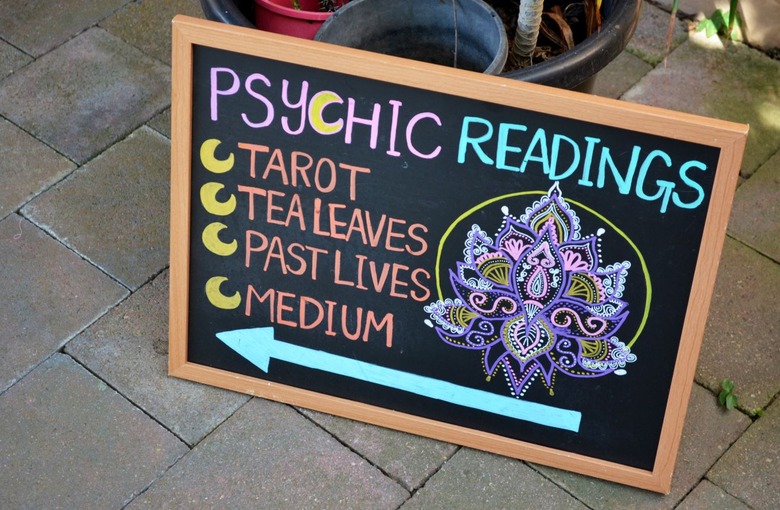 PSYCHIC READINGS
TAROT
TEA LEAVES
PAST LIVES
MEDIUM